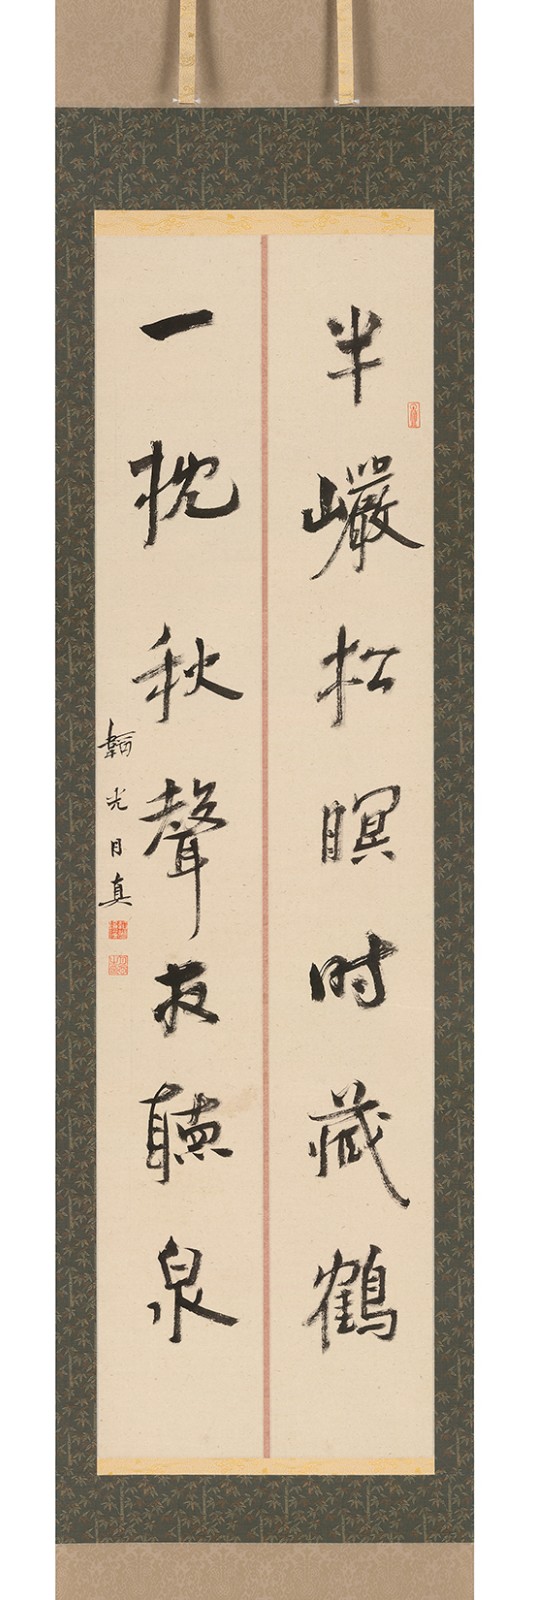 半巗松瞑时藏鶴
一枕秋聲夜聽泉
韜光月真